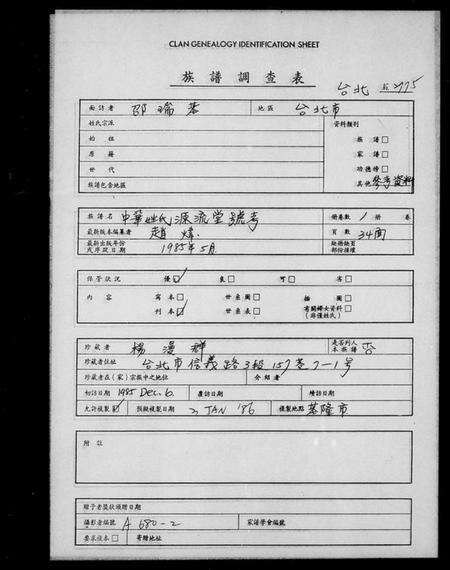 CLAN GENEALOGY IDENTIFICATION SHEET
族譜調查表
台北 775
面訪者 邵瑞基 地區 台北市
姓氏宗派 資料類別
始祖 族譜□
原籍 家譜□
世代 功德榜□
族譜包含地區 其他 參考資料
族譜名 中華姓氏源流堂號考 冊卷數 1 冊 卷
最新版本編纂者 趙煒 頁數 34面
最新出版年份 1985年5月 缺掉缺頁
或序跋日期 部份摘樣
保管狀況 優☑ 良□ 可□ 劣□
內容 寫本□ 世系圖□ 插圖□
刊本☑ 世系表□ 有關婦女資料□
(非僅姓氏)
珍藏者 楊漫群 是否列入本族譜 否
珍藏者住址 台北市信義路3段157巷7-1號
珍藏者在(家)宗族中之地位 介紹者
初訪日期 1985 Dec. 6. 覆訪日期 續訪日期
允許複製☑ 預擬複製日期 2 JAN '86 複製地點 基隆市
附註
贈予者獎狀頒贈日期
攝影者編號 A 680-2 家譜學會編號
要求複本□ 寄贈地址